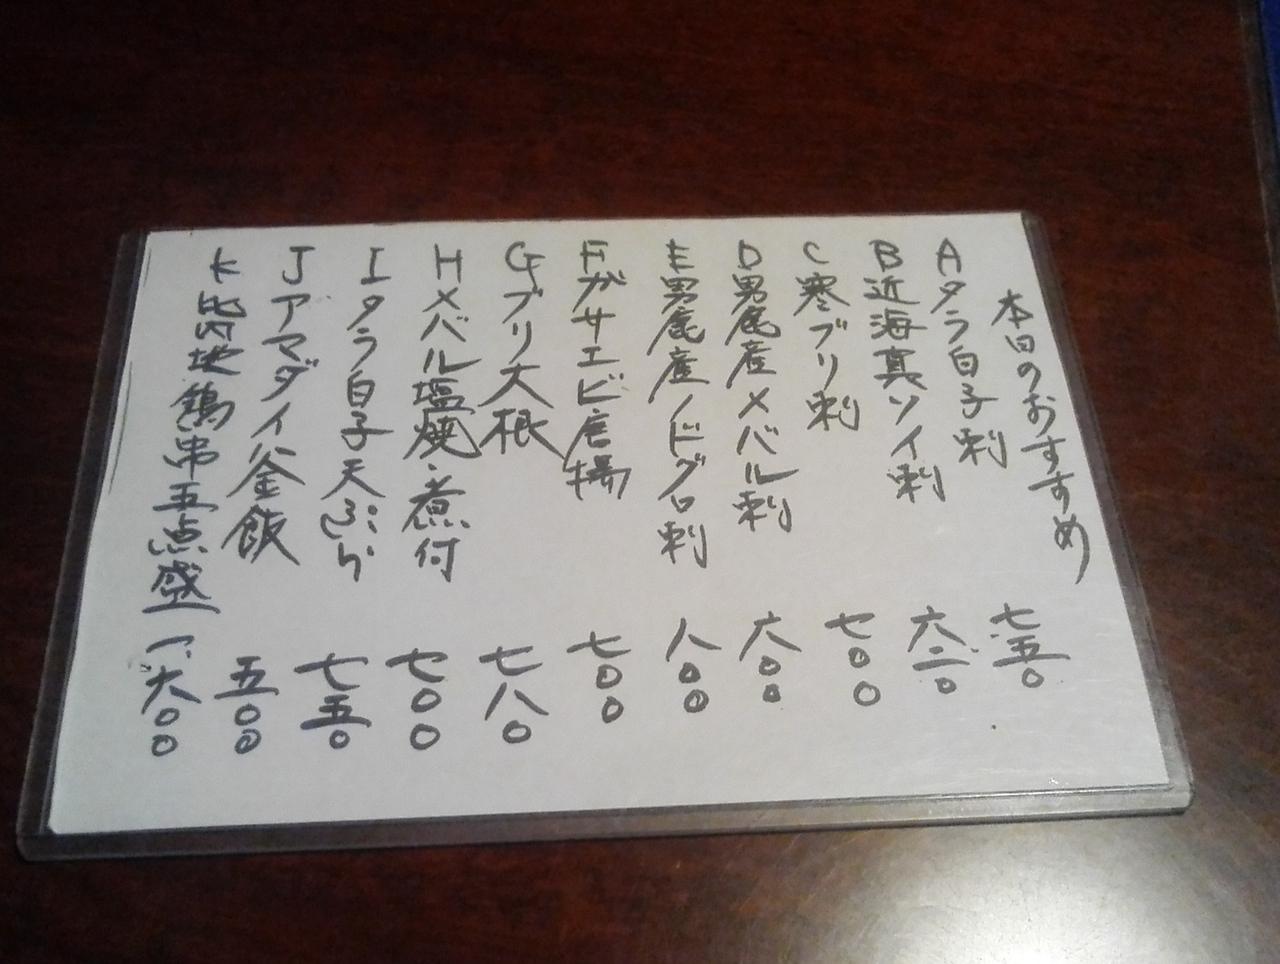 本日のおすすめ
A タラ白子刺 七五〇
B 近海真ソイ刺 六二〇
C 寒ブリ刺 七〇〇
D 男鹿産メバル刺 六〇〇
E 男鹿産ノドグロ刺 八〇〇
F ガサエビ唐揚 七〇〇
G ブリ大根 七八〇
H メバル塩焼・煮付 七〇〇
I タラ白子天ぷら 七五〇
J アマダイ釜飯 五〇〇
K 比内地鶏串五点盛 一、六〇〇